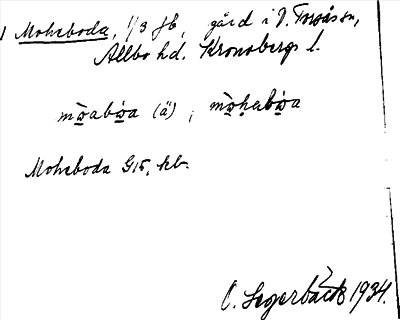 1 Moheboda, 1/3 fb, gård i V. Torsås sn,
Allbo hd. Kronobergs l.
mωabωa (ä) ; mωhabωa
Moheboda G15, kb.
C. Segerbäck 1934.